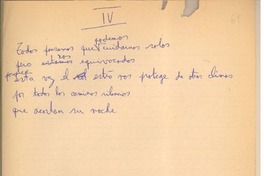 IV
podemos
Todos pensamos que cuidarnos solos
nos
pero estamos equivocados
Esta vez el nos protege de otros climas
por todos los caminos urbanos
que acortan su noche